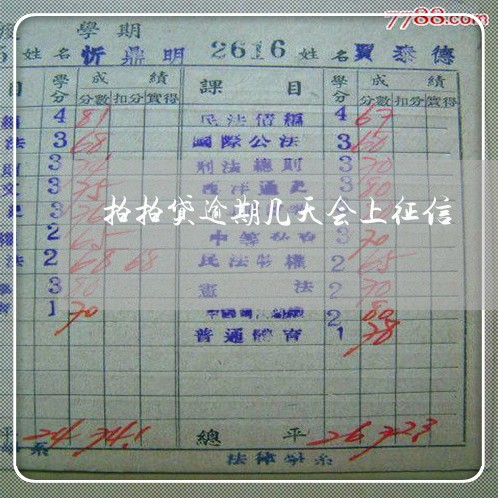 7788.com
學期
姓名 忻鼎明 2616 姓名 賈泰德
目 學分 成績 課目 學分 成績
分數 扣分 實得 分數 扣分 實得
4 81 民法債編 4 67
法 3 68 國際公法 3 60
3 刑法總則 3 70
3 75 西洋通史 3 80
拍拍贷逾期几天会上征信
2 65 3 70
法 2 68 68 民法物權 2 65
3 80 憲法 2 70
1 70 2 80
普通體育 1 78
平 24 74.1 總平 26 72.3
系 法律學系